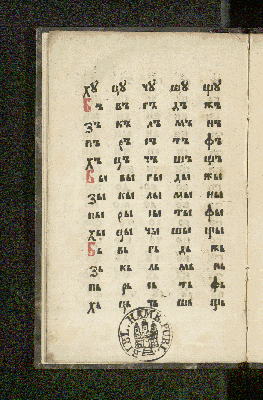 хꙋ цꙋ чꙋ шꙋ щꙋ
Бъ въ гъ дъ жъ
зъ къ лъ мъ нъ
пъ ръ съ тъ фъ
хъ цъ чъ шъ щъ
Бы вы гы ды жы
зы кы лы мы ны
пы ры сы ты фы
хы цы чы шы щы
Бь вь гь дь жь
зь кь ль мь нь
пь рь сь ть фь
хь ць чь шь щь